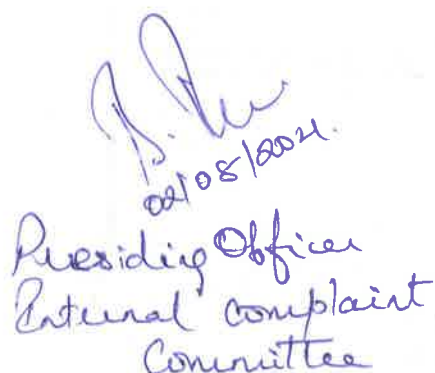 02/08/2021.
Presiding Officer
Internal complaint
Committee